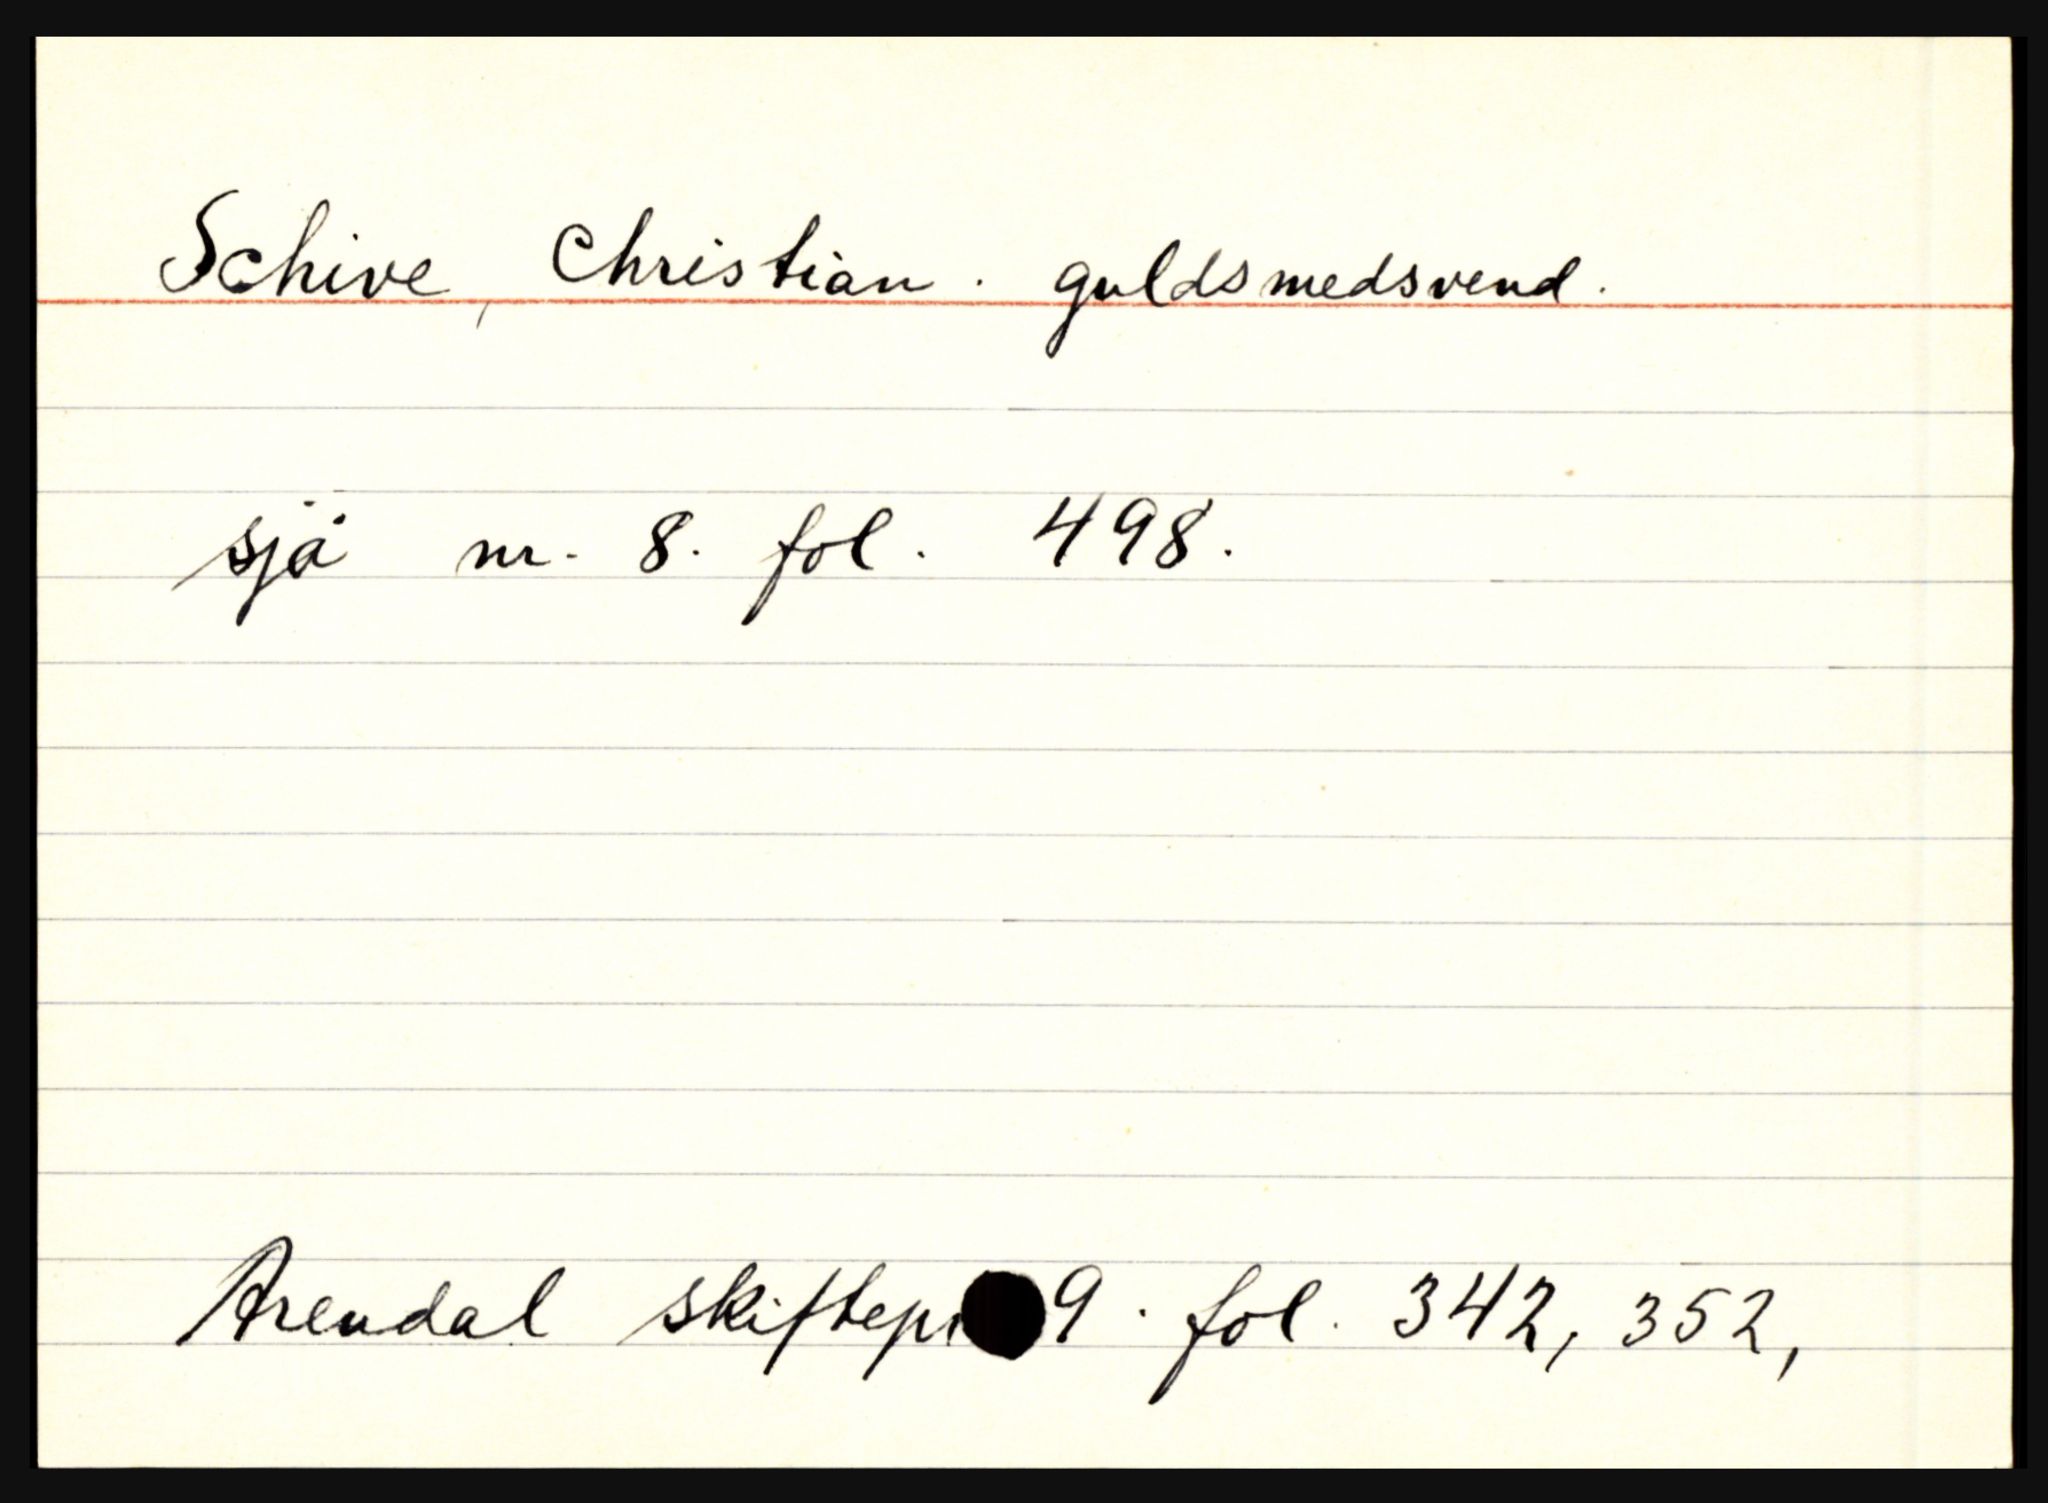 Schive, Christian. guldsmedsvend.
sjå nr. 8. fol. 498.
Arendal skiftepr 9. fol. 342, 352,